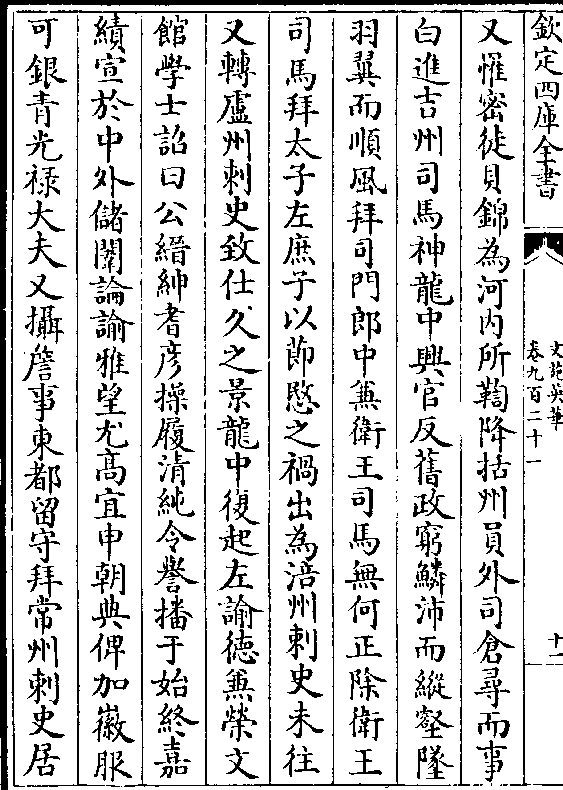 欽定四庫全書
文苑英華
卷九百二十一
十一
又惟密徒貝錦為河内所鞫降括州員外司倉尋而事
白進吉州司馬神龍中興官反舊政窮鱗沛而縱壑墜
羽翼而順風拜司門郎中兼衛王司馬無何正除衛王
司馬拜太子左庶子以節愍之禍出為涪州刺史未往
又轉廬州刺史致仕久之景龍中復起左諭徳兼榮文
館學士詔曰公縉紳耆彦操履清純令譽播于始終嘉
績宣於中外儲闈論諭雅望尤髙宜申朝典俾加徽服
可銀青光禄大夫又攝詹事東都留守拜常州刺史居